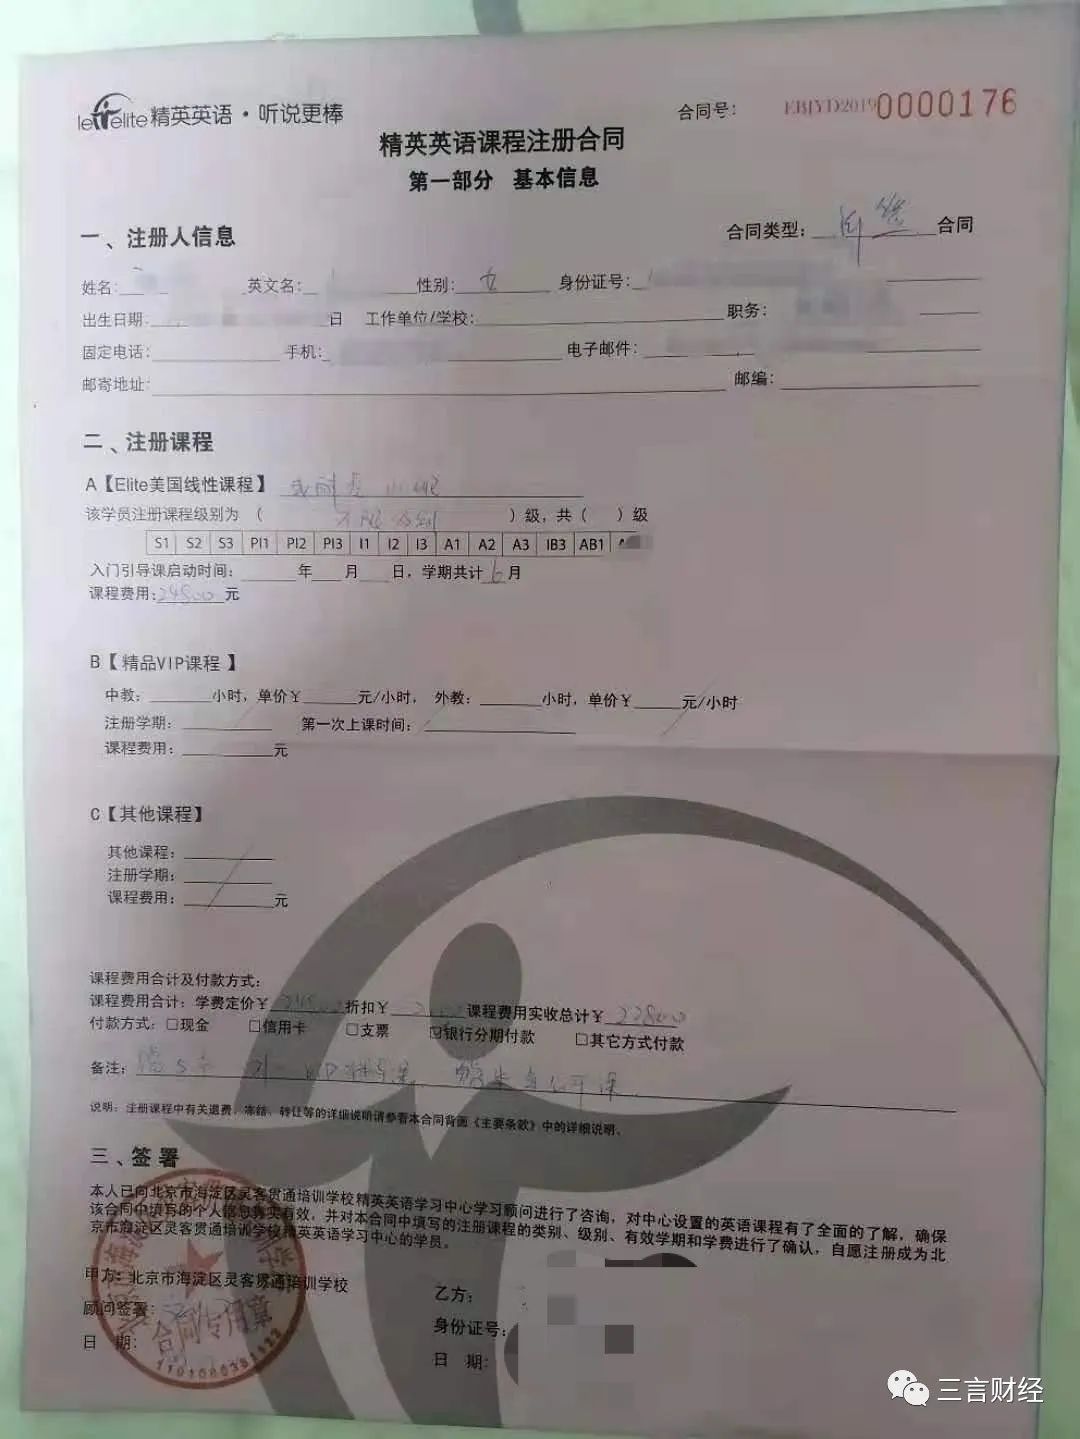 letelite精英英语·听说更棒
合同号: EBJYD20190000176
精英英语课程注册合同
第一部分 基本信息
一、注册人信息
合同类型: 合同
姓名: 英文名: 性别: 女 身份证号:
出生日期: 日 工作单位/学校: 职务:
固定电话: 手机: 电子邮件:
邮寄地址: 邮编:
二、注册课程
A【Elite美国线性课程】
该学员注册课程级别为 ( ) 级, 共 ( ) 级
S1 S2 S3 PI1 PI2 PI3 I1 I2 I3 A1 A2 A3 IB3 AB1
入门引导课启动时间: 年 月 日, 学期共计 6 月
课程费用: 24800 元
B【精品VIP课程】
中教: 小时, 单价¥ 元/小时, 外教: 小时, 单价¥ 元/小时
注册学期: 第一次上课时间:
课程费用: 元
C【其他课程】
其他课程:
注册学期:
课程费用: 元
课程费用合计及付款方式:
课程费用合计: 学费定价¥ 24800 折扣¥ 课程费用实收总计¥ 22800
付款方式: □现金 □信用卡 □支票 ☑银行分期付款 □其它方式付款
备注:
说明: 注册课程中有关退费、冻结、转让等的详细说明请参看本合同背面《主要条款》中的详细说明。
三、签署
本人已向北京市海淀区灵客贯通培训学校精英英语学习中心学习顾问进行了咨询, 对中心设置的英语课程有了全面的了解, 确保
该合同中填写的个人信息真实有效, 并对本合同中填写的注册课程的类别、级别、有效学期和学费进行了确认, 自愿注册成为北
京市海淀区灵客贯通培训学校精英英语学习中心的学员。
甲方: 北京市海淀区灵客贯通培训学校
乙方:
顾问签署:
身份证号:
日 期:
日 期:
合同专用章
三言财经